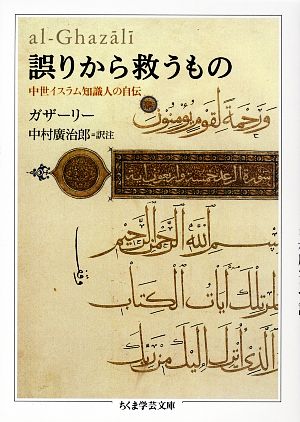 al-Ghazālī
誤りから救うもの
中世イスラム知識人の自伝
ガザーリー
中村廣治郎=訳注
ورحمة لقوم يؤمنون
سورة الرعد
بسم الله الرحمن الرحيم
المر تلك آيات الكتاب
والذي أنزل إليك من ربك
ちくま学芸文庫